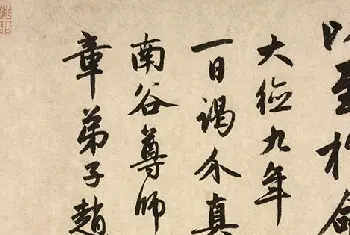 以至於命
大德九年
一日謁介真
南谷尊師
章弟子趙